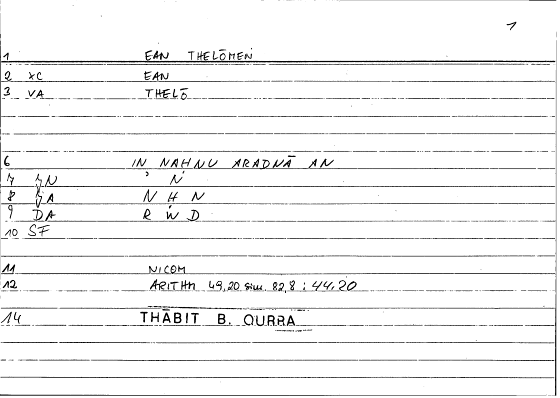 1
1 EAN THELŌMEN
2 XC EAN
3 VA THELŌ
6 IN NAHNU ARADNĀ AN
7 ' N
8 N H N
9 DA R W D
10 SF
11 NICOM
12 ARITHM 49,20 sim. 82,8 : 44,20
14 THĀBIT B. QURRA